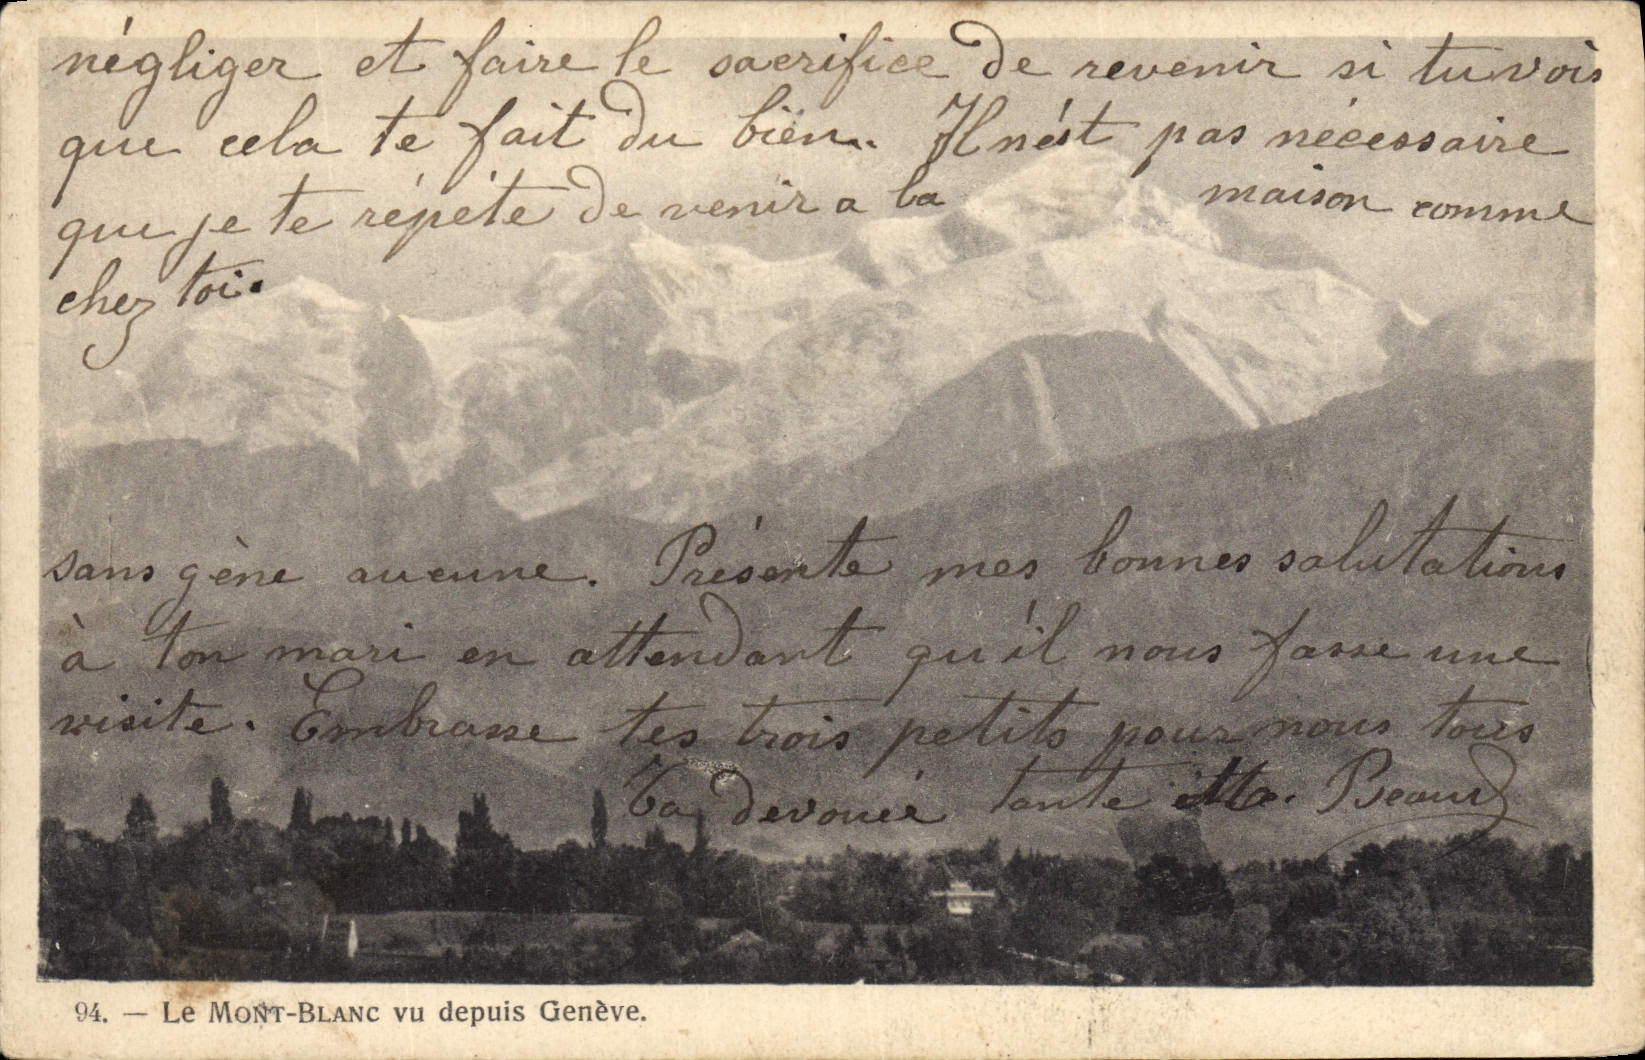 négliger et faire le sacrifice de revenir si tu vois
que cela te fait du bien. Il n'est pas nécessaire
que je te répéte de venir a la maison comme
chez toi.
sans gène aucune. Présente mes bonnes salutations
à ton mari en attendant qu'il nous fasse une
visite. Embrasse tes trois petits pour nous tous
Ta dévouée tante
94. — Le Mont-Blanc vu depuis Genève.